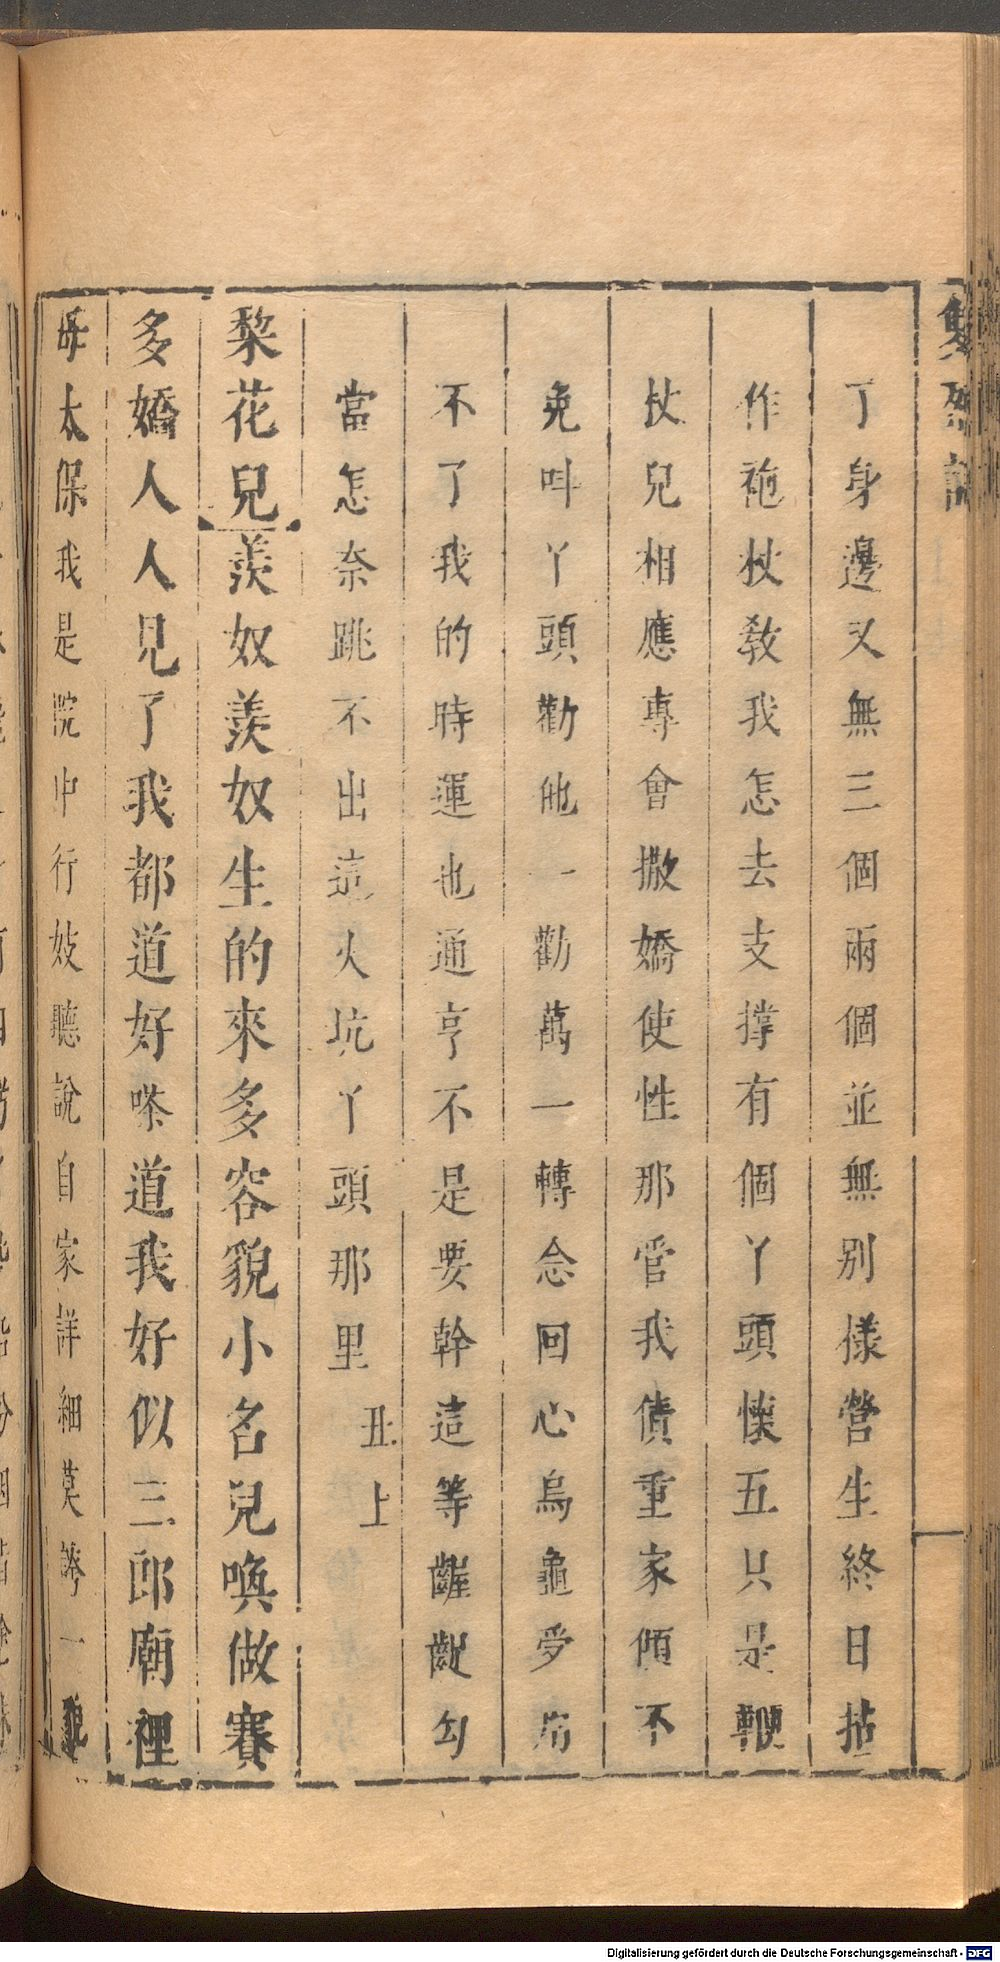 雙烈記
丁身邊又無三個兩個並無别樣營生終日拈
作砲杖教我怎去支撑有個丫頭懷五只是鞭
杖兒相應專會撒嬌使性那管我債重家傾不
免呌丫頭勸他一勸萬一轉念回心烏龜
不了我的時運也通亨不是要幹這等齷齪勾
當怎奈跳不出這火坑丫頭那里 丑上
棃花兒羨奴羨奴生的來多容貌小名兒喚做賽
多嬌人人見了我都道好嗏道我好似三郎廟裡
太保我是院中行妓聽說自家詳細莫誇一貌
Digitalisierung gefördert durch die Deutsche Forschungsgemeinschaft - DFG